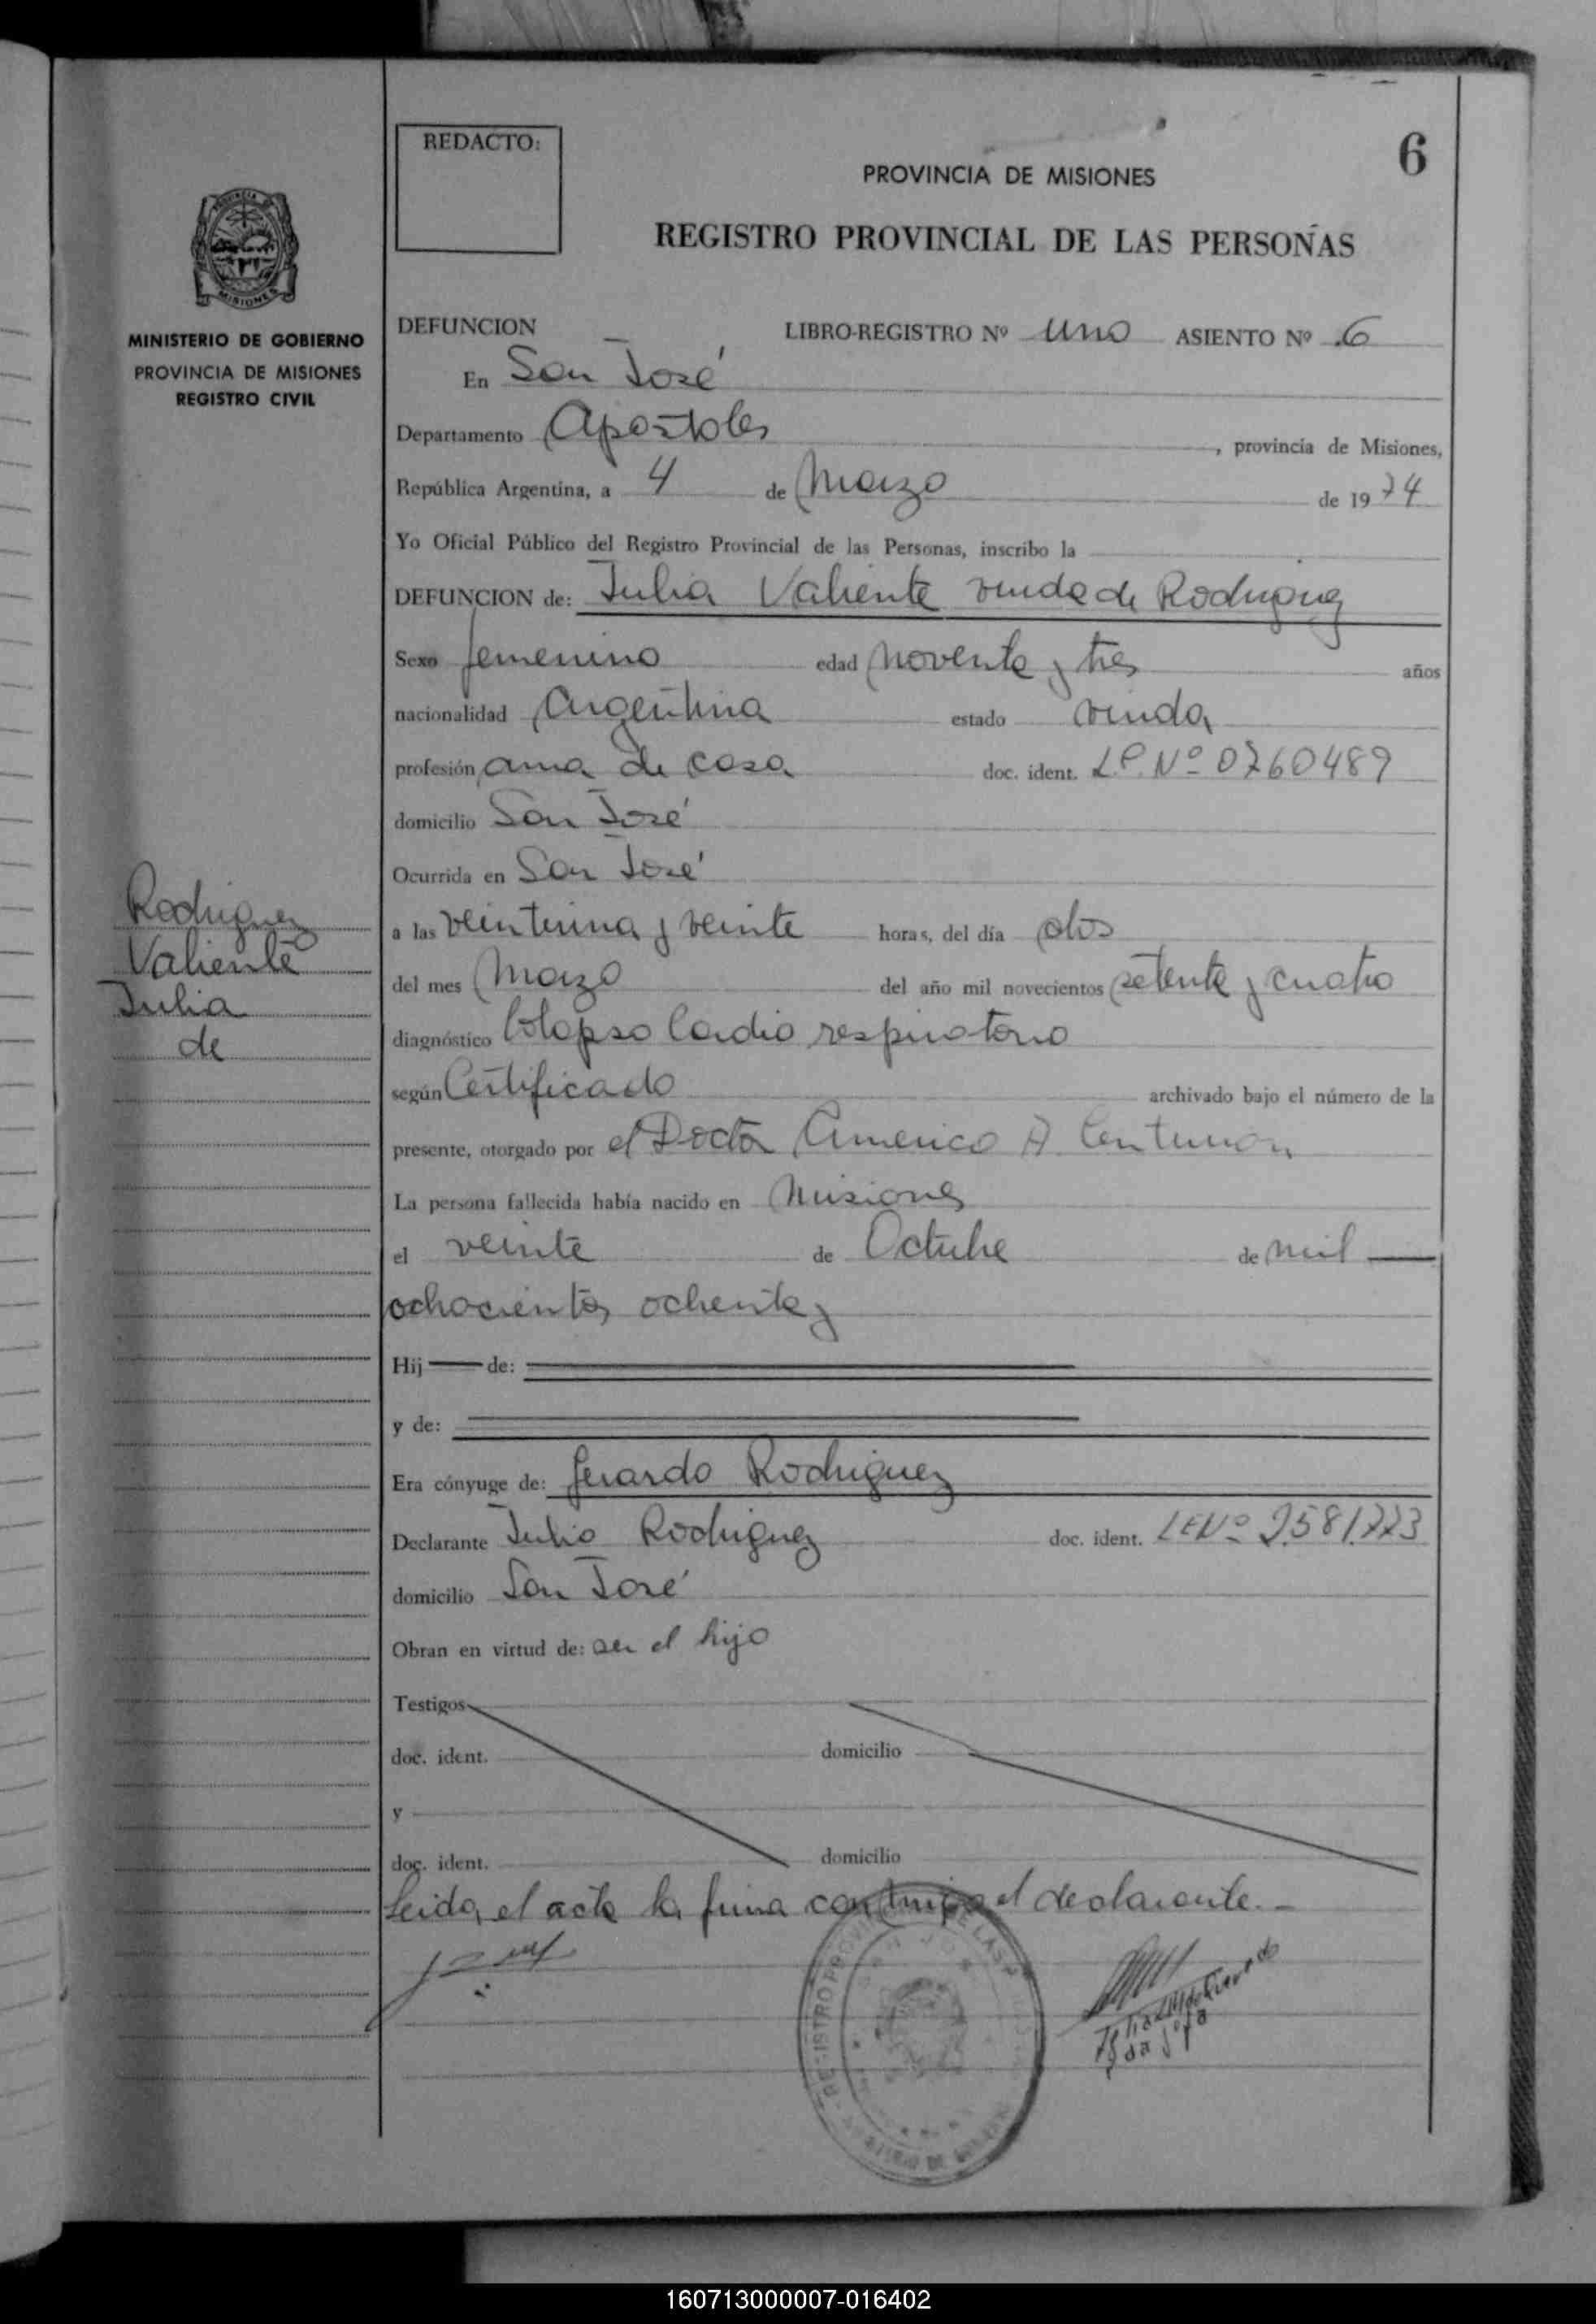 REDACTO:
6
PROVINCIA DE MISIONES
REGISTRO PROVINCIAL DE LAS PERSONAS
MISIONES
MINISTERIO DE GOBIERNO
PROVINCIA DE MISIONES
REGISTRO CIVIL
DEFUNCION LIBRO-REGISTRO Nº uno ASIENTO Nº 6
En San José
Departamento Apostoles, provincia de Misiones,
República Argentina, a 4 de Marzo de 1974
Yo Oficial Público del Registro Provincial de las Personas, inscribo la
DEFUNCION de: Julia Valiente viuda de Rodriguez
Sexo femenino edad noventa y tres años
nacionalidad Argentina estado viuda
profesión ama de casa doc. ident. L.C. Nº 0760489
domicilio San José
Ocurrida en San José
a las veintiuna y veinte horas, del día dos
del mes Marzo del año mil novecientos setenta y cuatro
diagnóstico Colapso Cardio respiratorio
según Certificado archivado bajo el número de la
presente, otorgado por el Doctor Americo A. Centurion
La persona fallecida había nacido en Misiones
el veinte de Octubre de mil
ochocientos ochenta
Hij de:
y de:
Era cónyuge de: Gerardo Rodriguez
Declarante Julio Rodriguez doc. ident. LE Nº 2.581.773
domicilio San José
Obran en virtud de: ser el hijo
Testigos
doc. ident. domicilio
y
doc. ident. domicilio
Leida el acta la firma conmigo el declarante.-
Rodriguez
Valiente
Julia
de
160713000007-016402